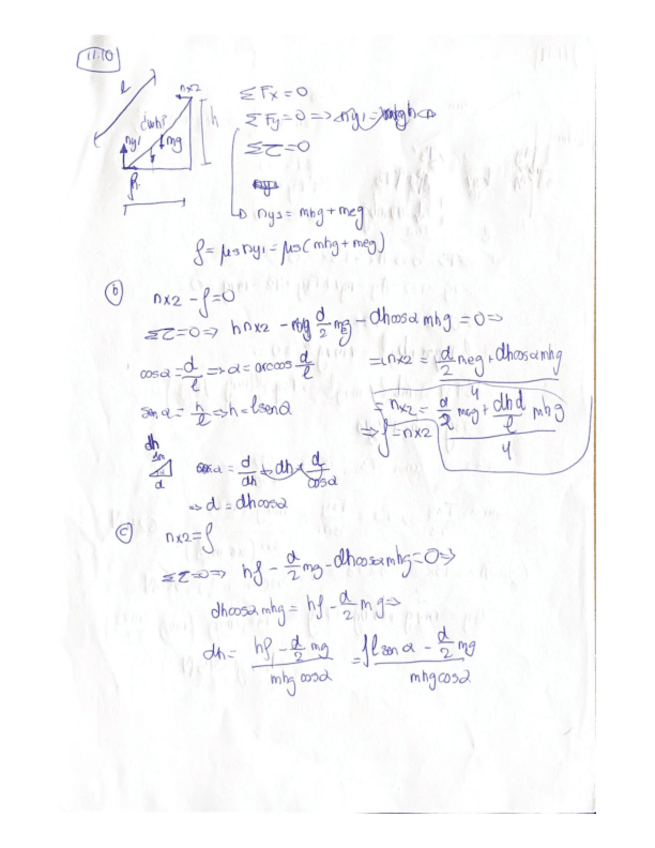 11.10
nx2
l
h
ny1 mg
f
ΣFx = 0
ΣFy = 0 => ny1 =
Στ = 0
ny1 = mhg + meg
f = μs ny1 = μs(mhg + meg)
b
nx2 - f = 0
Στ = 0 => h nx2 - d/2 mg - dh cosα mhg = 0 =>
cosα = d/l => α = arccos d/l
=> h nx2 = d/2 meg + dh cosα mhg
sinα = h/l => h = l sinα
= nx2 = d/2 meg + dh d/l mhg
h
=> f = nx2
dh
d
cosα = d/dh => dh = d/cosα
=> d = dh cosα
c
nx2 = f
Στ = 0 => hf - d/2 mg - dh cosα mhg = 0 =>
dh cosα mhg = hf - d/2 mg =>
dh = hf - d/2 mg / mhg cosα = f l sinα - d/2 mg / mhg cosα